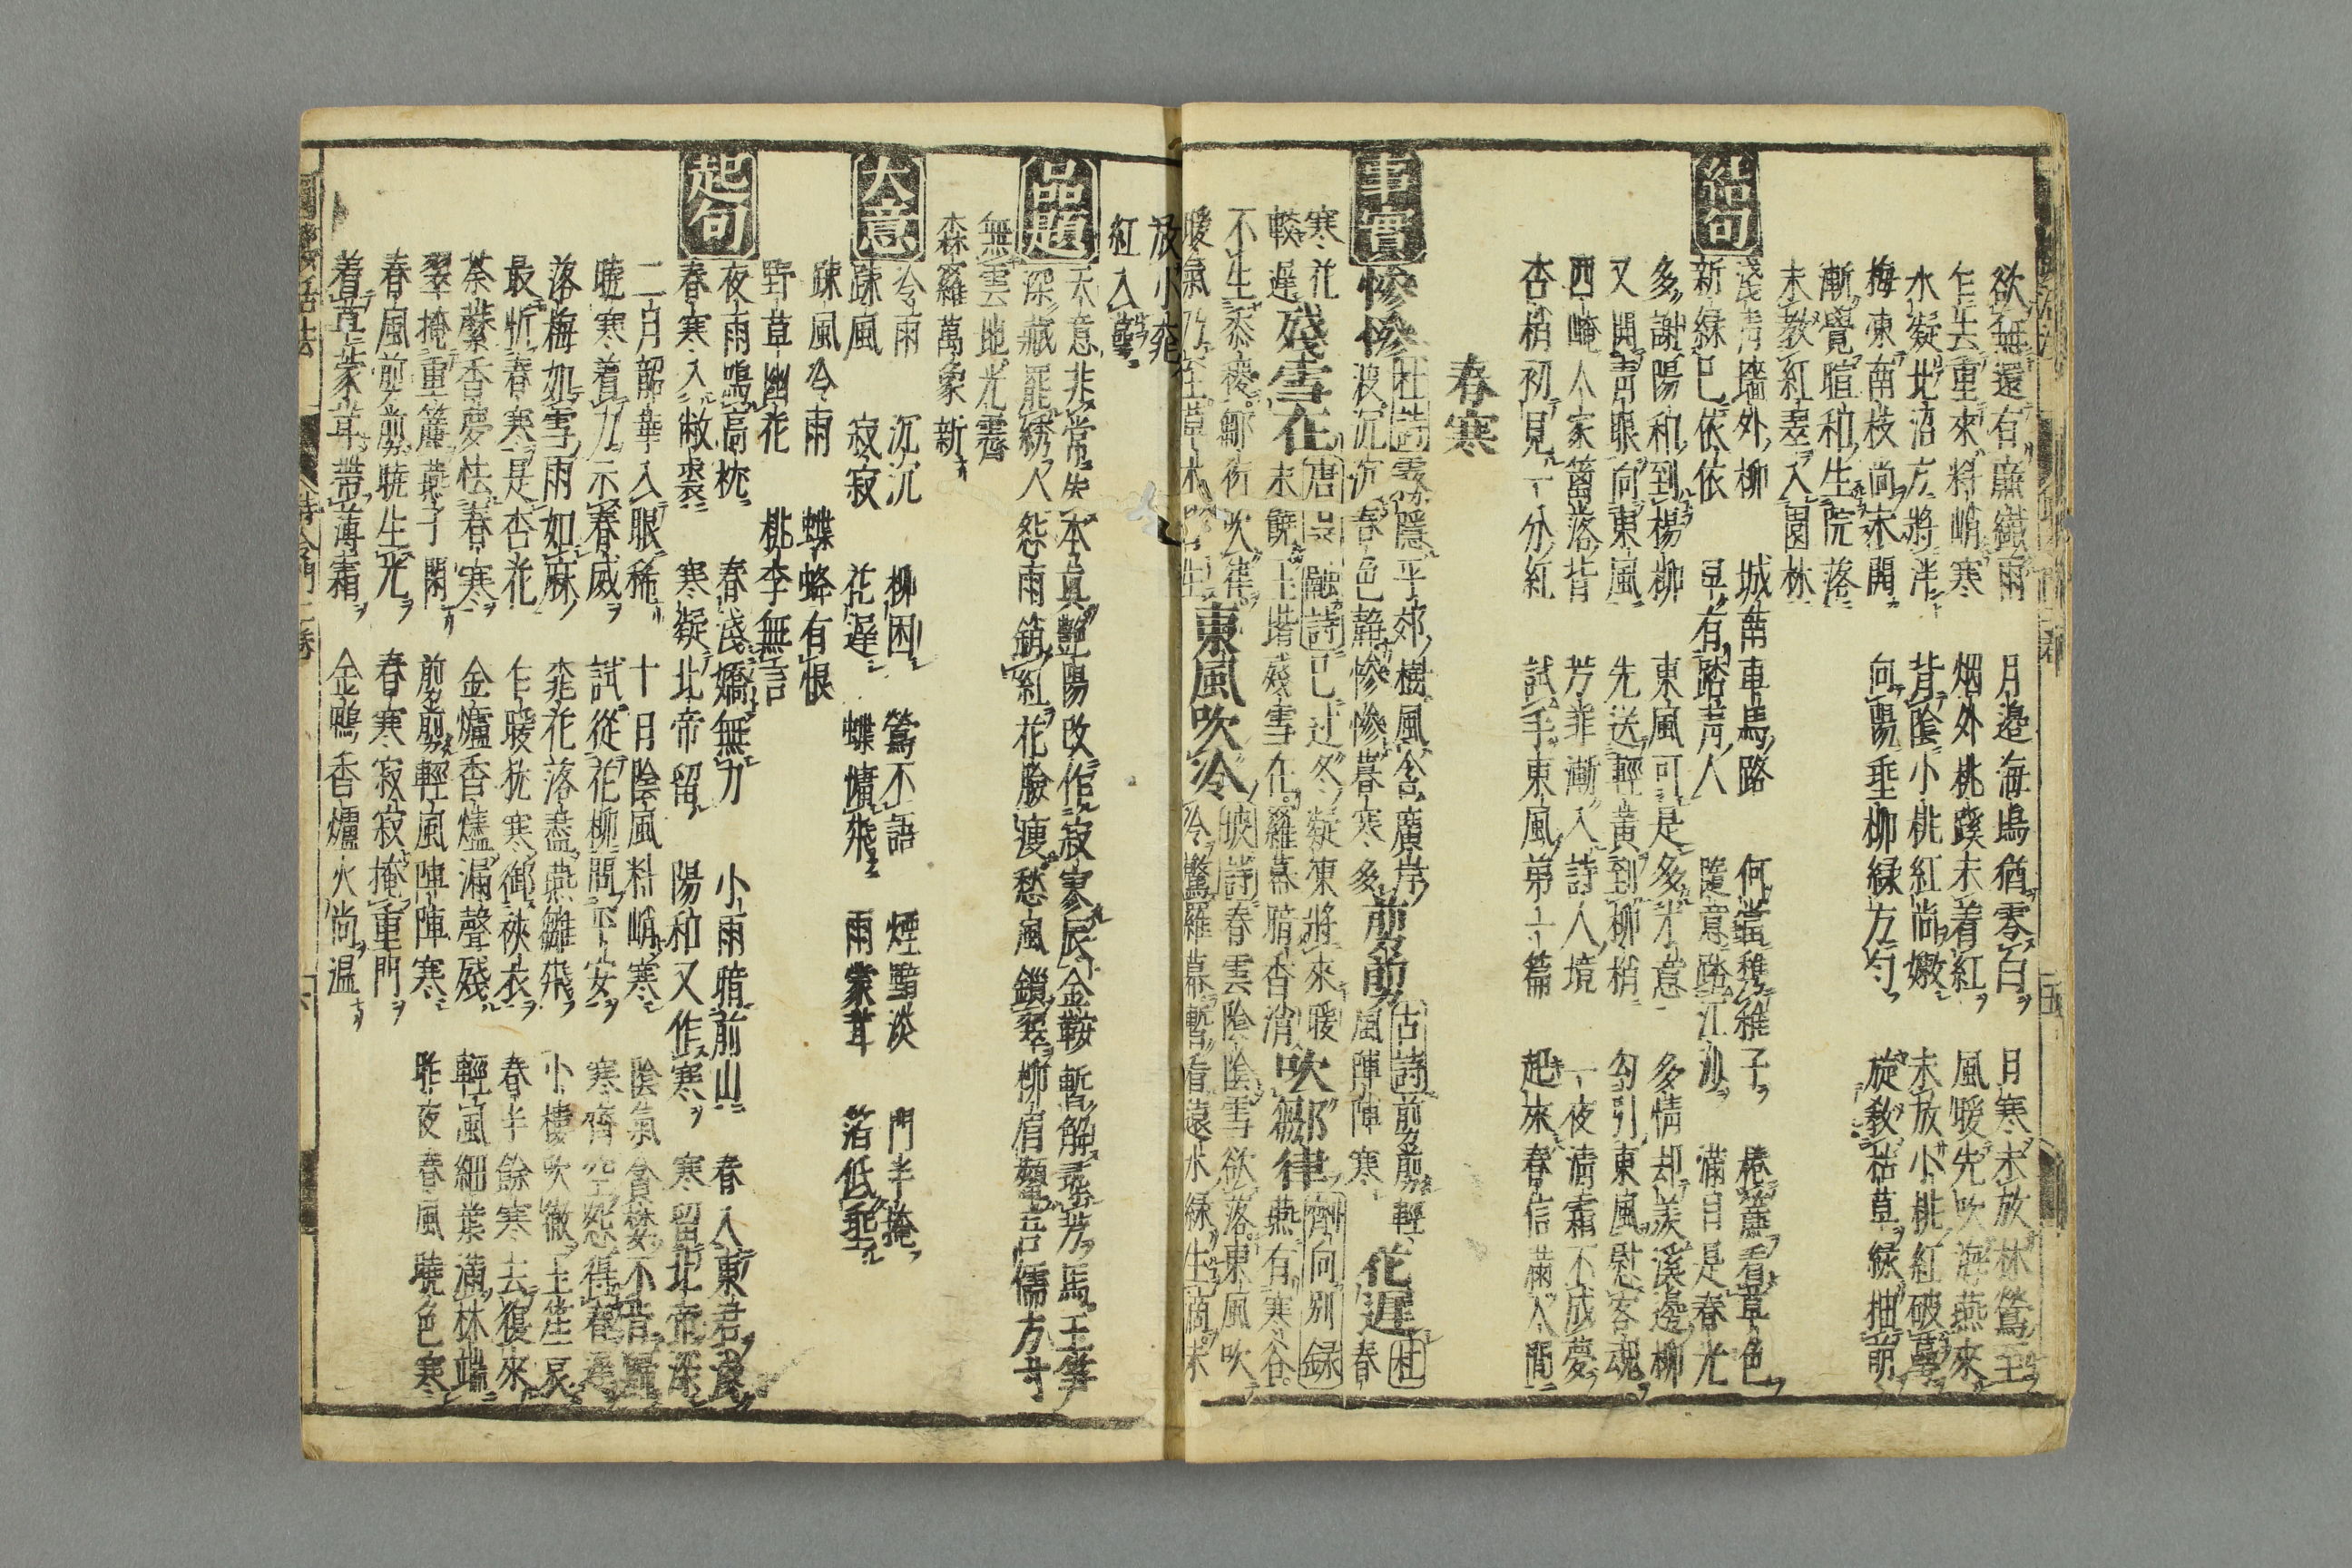 欲無還有廉纖雨　月邉海塢猶零白　日寒未放林鶯至
乍去重來料峭寒　烟外桃蹊未着紅　風暖先吹海燕來
水凝北沼方將泮　背陰小桃紅尚嫩　未放小桃紅破萼
梅凍南枝尚未開　向陽垂柳緑方勻　旋教枯草緑抽萌
漸覺暄和生院落
未教紅蕚入園林
結句
淺青墻外柳　城南車馬路　何當携稚子　捲簾看草色
新緑已依依　早有踏青人　隨意踏江沙　滿目是春光
多謝陽和到楊柳　東風可是多才意　多情却羡溪邊柳
又開青眼向東風　先送輕黄到柳梢　勾引東風慰客魂
西崦人家籬落背　芳菲漸入詩人境　一夜清霜不成夢
杏梢初見一分紅　試手東風第一篇　起來春信滿人間
春寒
事實
慘慘　杜詩霧隱平郊樹風含廣岸波沉沉春色靜慘慘暮寒多
剪剪　古詩剪剪輕風陣陣寒
花遲　杜春寒花較遲
殘雪在　唐吴融詩已過冬凝凍將來暖未饒上堦殘雪在羅幕暗香消
吹鄒律　劉向别録燕有寒谷不生黍稷鄒衍吹律暖氣乃至草木皆生
東風吹冷　坡詩春雲陰陰雪欲落東風吹冷驚羅幕暫看遠水緑生漪未放小桃紅入萼
品題
天意非常失本真艶陽改作寂寥辰金鞍暫解尋芳馬玉筝
深藏罷綉人怨雨銷紅花臉瘦愁風鎖翠柳眉顰吾儒方寸
無雲地光霽
森羅萬象新
大意
冷雨　沉沉　柳困　鶯不語　煙黯淡　門半掩
踈風　寂寂　花遲　蝶慵飛　雨蒙茸　箔低埀
踈風冷雨　蝶蜂有恨
野草幽花　桃李無言
起句
夜雨鳴高枕　春淺嬌無力　小雨暗前山　春入東君
春寒入敝裘　寒凝北帝留　陽和又作寒　寒留北帝
二月韶華入眼稀　十日陰風料峭寒　陰氣
曉寒着力示春威　試從花柳問平安　寒
落梅如雪雨如麻　桃花落盡燕雛飛　小樓吹徹玉笙哀
最忻春寒是杏花　乍暖犹寒御裌衣　春半餘寒去復來
荼蘪香夢怯春寒　金爐香燼漏聲殘　輕風細葉滿林端
翠掩重簾燕子閑　剪剪輕風陣陣寒　昨夜春風曉色寒
春風剪剪曉生光　春寒寂寂掩重門
着草蒙茸帶薄霜　金鴨香爐火尚温